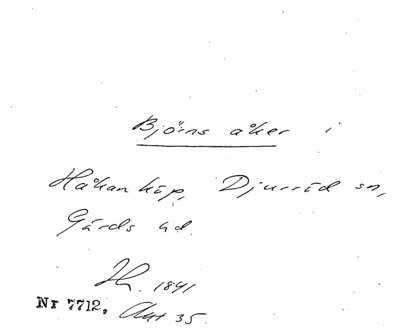 Björns åker i
Håkanköp, Djurröd sn,
Gärds hd.
1841
Nr 7712, Akt 35.